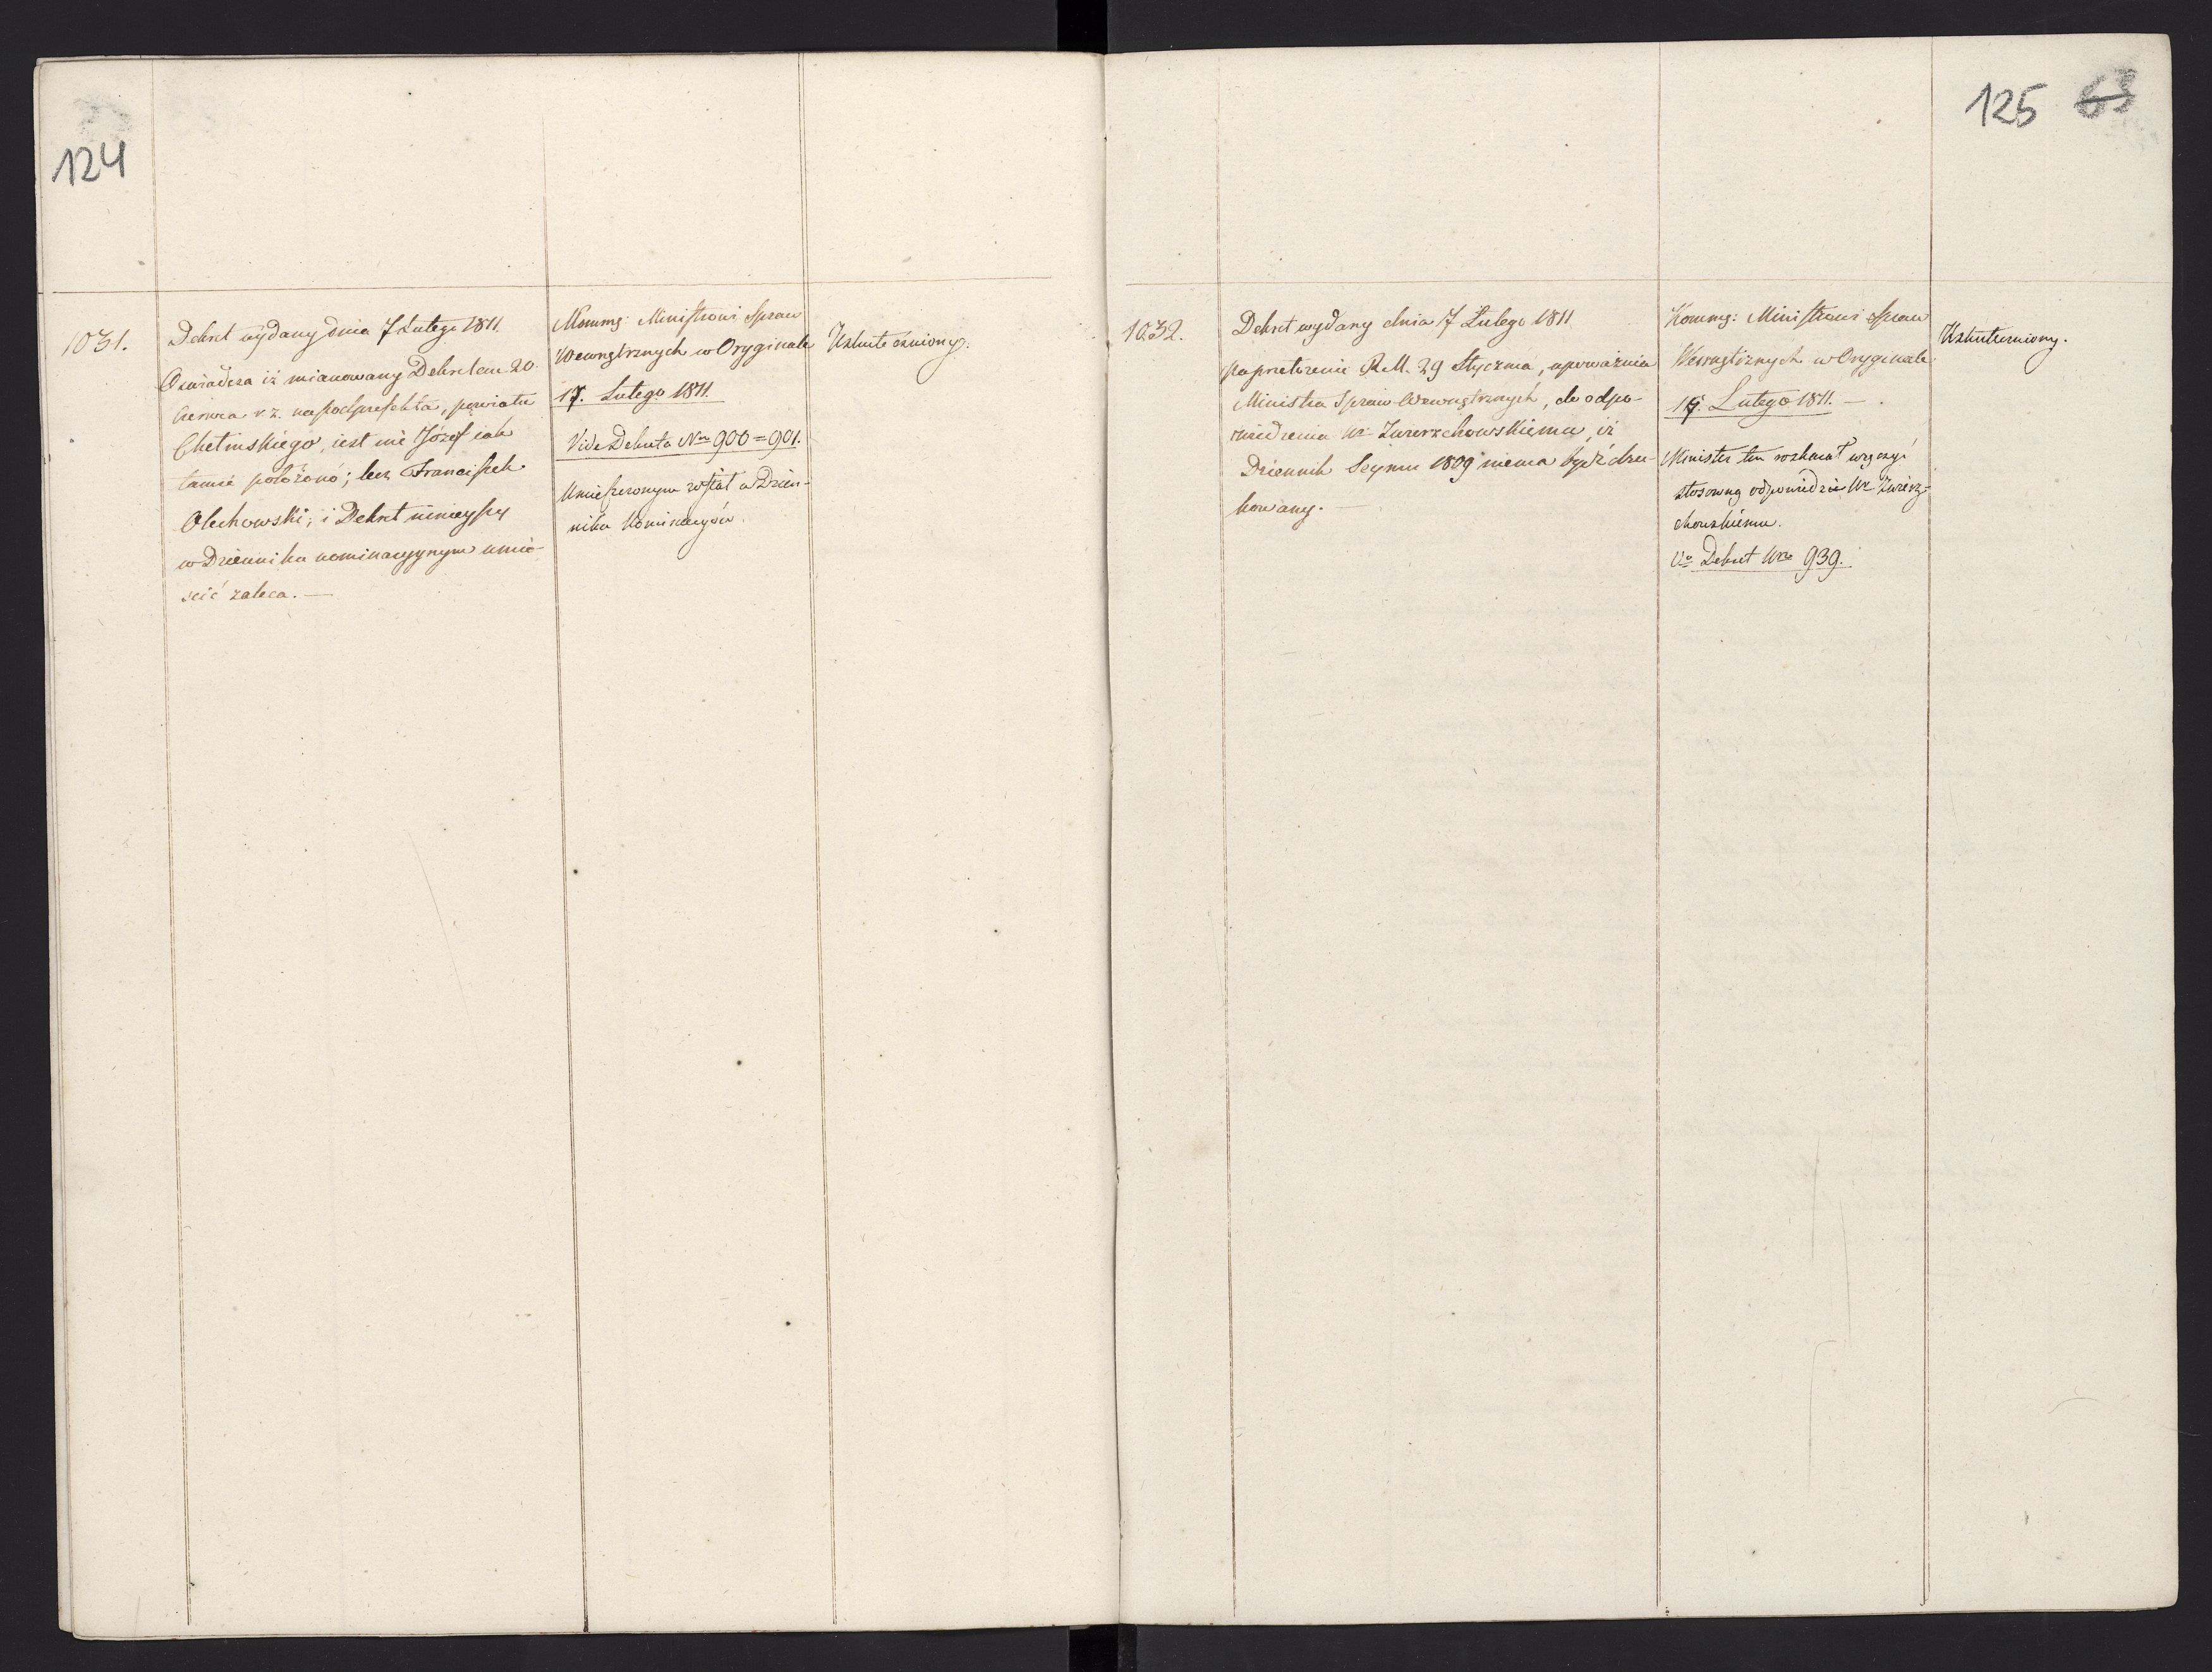 124
1031.
Dekret wydany dnia 7 Lutego 1811.
Oświadcza iż mianowany Dekretem 20
Czerwca r. z. na podprefekta, powiatu
Chełmskiego, iest nie Józef iak
tamże położono; lecz Franciszek
Olechowski; i Dekret ninieyszy
w Dzienniku nominacyynym umie-
ścić zaleca. —
Kommg: Ministrowi Spraw
Wewnętrznych w Oryginale
17. Lutego 1811.
Vide Dekreta Nro 900 = 901.
Umieszczonym został w Dzien-
niku Nominacyów.
Uskuteczniony.
125 63
1032.
Dekret wydany dnia 7 Lutego 1811
Na przełożenie R. M. 29 Stycznia, upoważnia
Ministra Spraw Wewnętrznych, do odpo-
wiedzenia Ur. Zwierzchowskiemu, iż
Dziennik Seymu 1809 niema bydź dru-
kowany. —
Kommg: Ministrowi Spraw
Wewnętrznych w Oryginale
Lutego 1811. —
Minister ten wręczyć
stosowną odpowiedzie Ur Zwierz-
chowskiemu.
Va Dekret Nro 939.
Uskuteczniony.